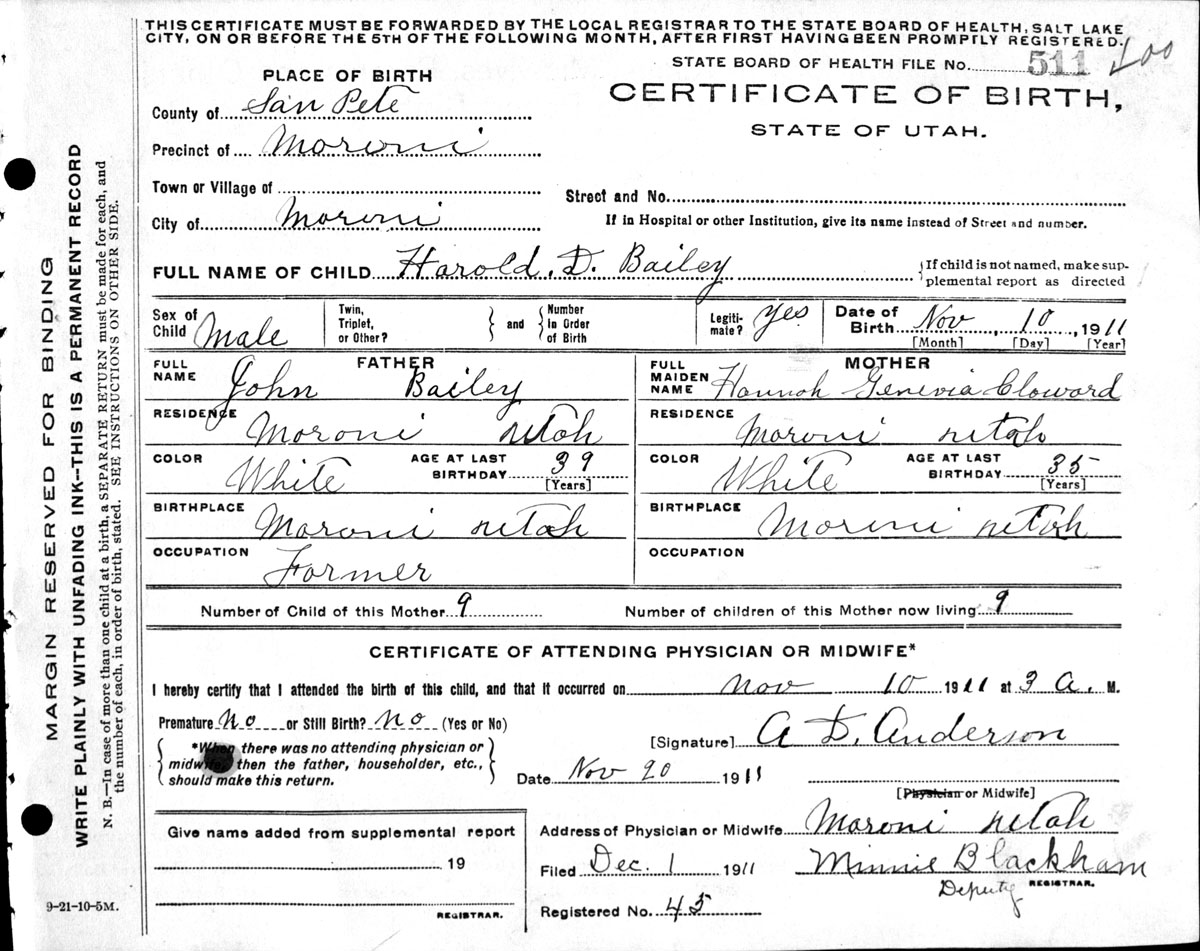 THIS CERTIFICATE MUST BE FORWARDED BY THE LOCAL REGISTRAR TO THE STATE BOARD OF HEALTH, SALT LAKE
CITY, ON OR BEFORE THE 5TH OF THE FOLLOWING MONTH, AFTER FIRST HAVING BEEN PROMPTLY REGISTERED.
STATE BOARD OF HEALTH FILE No. 511 100
PLACE OF BIRTH
CERTIFICATE OF BIRTH,
STATE OF UTAH.
County of San Pete
Precinct of Moroni
Town or Village of
Street and No.
City of Moroni
If in Hospital or other Institution, give its name instead of Street and number.
FULL NAME OF CHILD Harold. D. Bailey
{If child is not named, make sup-
plemental report as directed
Sex of Child Male
Twin, Triplet, or Other? } and { Number In Order of Birth
Legiti-mate? Yes
Date of Birth Nov, 10, 1911
[Month] [Day] [Year]
FATHER
FULL NAME John Bailey
MOTHER
FULL MAIDEN NAME Hannah Genevia Cloward
RESIDENCE Moroni Utah
RESIDENCE Moroni Utah
COLOR White AGE AT LAST BIRTHDAY 39 [Years]
COLOR White AGE AT LAST BIRTHDAY 35 [Years]
BIRTHPLACE Moroni Utah
BIRTHPLACE Moroni Utah
OCCUPATION Farmer
OCCUPATION
Number of Child of this Mother 9
Number of children of this Mother now living 9
CERTIFICATE OF ATTENDING PHYSICIAN OR MIDWIFE*
I hereby certify that I attended the birth of this child, and that it occurred on Nov 10 1911 at 3 a. M.
Premature No or Still Birth? No (Yes or No)
{ *When there was no attending physician or
midwife, then the father, householder, etc.,
should make this return. }
[Signature] A D. Anderson
Date Nov 20 1911
[Physician or Midwife]
Give name added from supplemental report
19
REGISTRAR.
Address of Physician or Midwife Moroni Utah
Filed Dec. 1 1911 Minnie Blackham
Deputy REGISTRAR.
Registered No. 45
9-21-10-5M.
MARGIN RESERVED FOR BINDING
WRITE PLAINLY WITH UNFADING INK--THIS IS A PERMANENT RECORD
N. B.—In case of more than one child at a birth, a SEPARATE RETURN must be made for each, and
the number of each, in order of birth, stated. SEE INSTRUCTIONS ON OTHER SIDE.